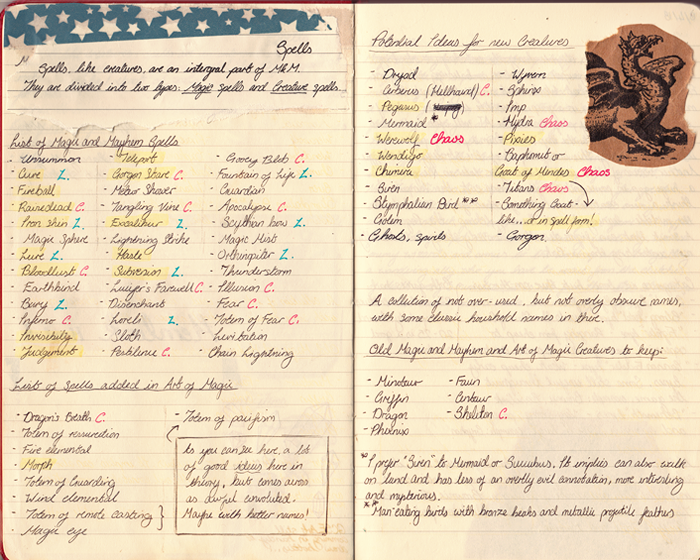 Spells
Spells, like creatures, are an intergral part of M&M.
They are divided into two types: Magic spells and Creature spells.
List of Magic and Mayhem Spells
- Unsummon
- Cure L.
- Fireball
- Raise dead C.
- Iron Skin L.
- Magic Sphere
- Lure L.
- Bloodlust C.
- Earthbind
- Bury L.
- Inferno C.
- Invisibility
- Judgement
- Teleport
- Gorgon Stare C.
- Meteor Shower
- Tangling Vine C.
- Excalibur L.
- Lightning Strike
- Haste
- Subversion L.
- Lawyer's Farewell C.
- Disenchant
- Loreli L.
- Sloth
- Pestilence C.
- Gooey Blob C.
- Fountain of Life L.
- Guardian
- Apocalypse C.
- Scythian bow L.
- Magic Mist
- Orthinpiter L.
- Thunderstorm
- Illusion C.
- Fear C.
- Totem of Fear C.
- Levitation
- Chain Lightning
Lists of Spells added in Art of Magic
- Dragon's Breath C.
- Totem of resurrection
- Fire elemental
- Morph
- Totem of Guarding
- Wind elemental
- Totem of remote casting
- Magic eye
- Totem of pacifism
As you can see here, a lot
of good ideas here in
theory, but comes across
as awful convoluted.
Maybe with better names!
Potential Ideas for new Creatures
- Dryad
- Cerberus (Hellhound) C.
- Pegasus
- Mermaid *
- Werewolf Chaos
- Wendigo
- Chimera
- Siren
- Stymphalian Bird **
- Golem
- Ghosts, spirits
- Wyvern
- Sphinx
- Imp
- Hydra Chaos
- Pixies
- Baphomet or
Goat of Mendes Chaos
- Titans Chaos
- Something Goat-
like... or in spell form!
- Gorgon
A collection of not over-used, but not overly obscure names,
with some classic household names in there.
Old Magic and Mayhem and Art of Magic Creatures to keep:
- Minotaur
- Griffin
- Dragon
- Phoenix
- Faun
- Centaur
- Skeleton C.
* I prefer "Siren" to Mermaid or Succubus. It implies can also walk
on land and has less of an overtly evil connotation, more interesting
and mysterious.
** Man eating birds with bronze beaks and metallic projectile feathers